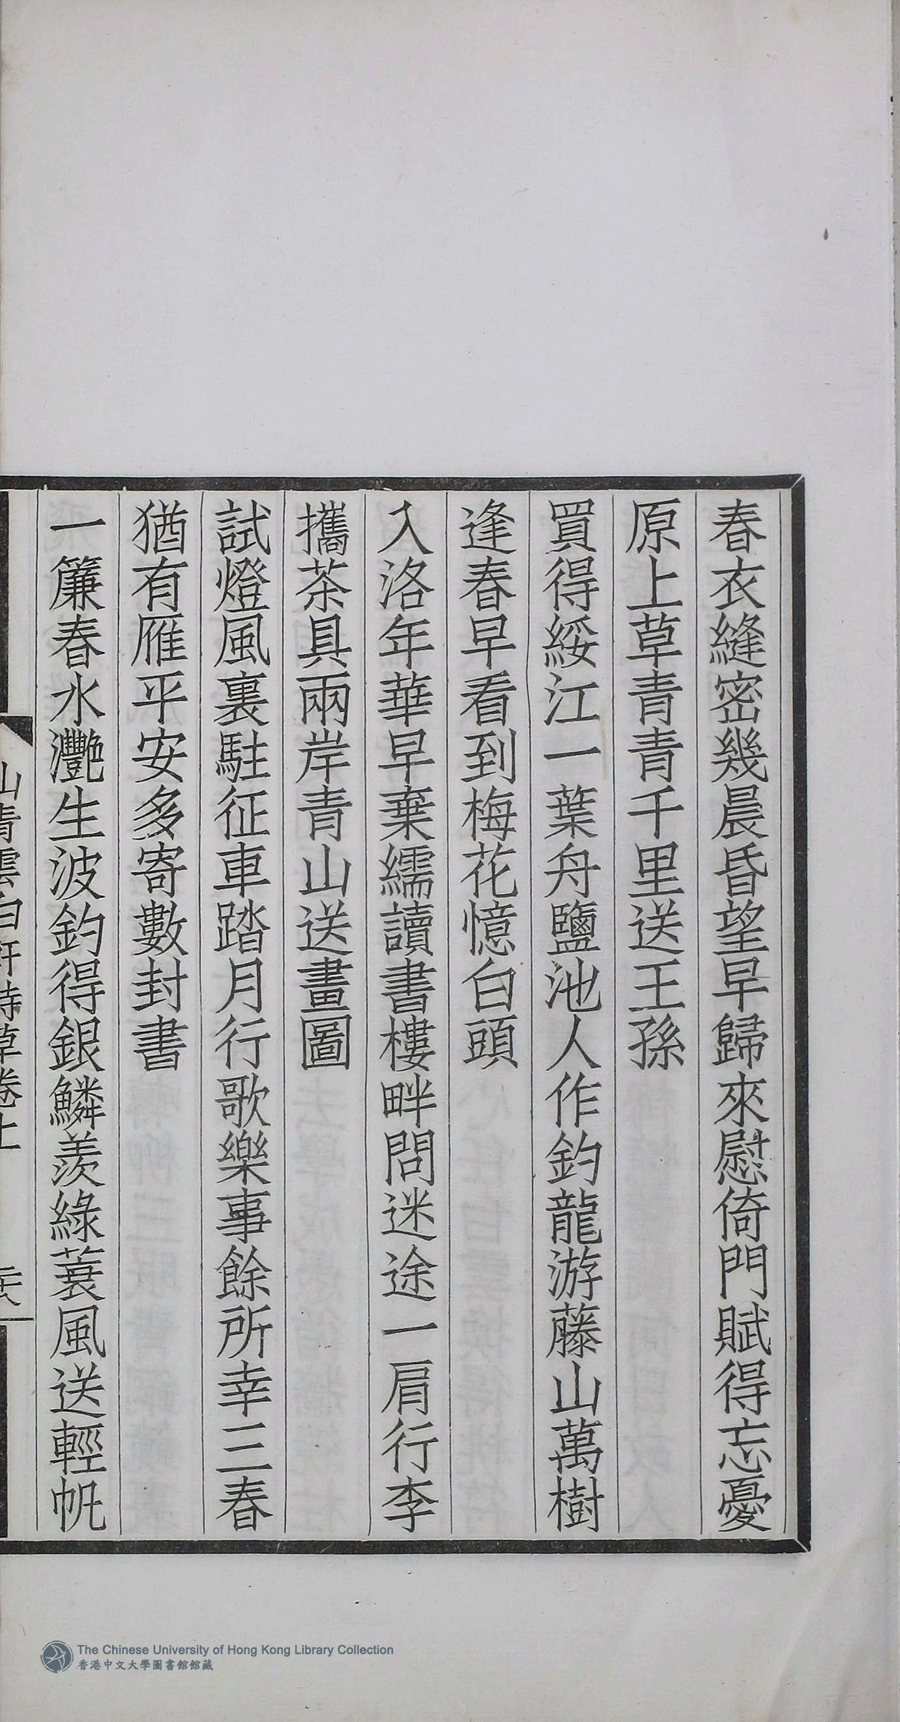 春衣縫密幾晨昏望早歸來慰倚門賦得忘憂
原上草青青千里送王孫
買得綏江一葉舟鹽池人作釣龍游藤山萬樹
逢春早看到梅花憶白頭
入洛年華早棄繻讀書樓畔問迷途一肩行李
攜茶具兩岸青山送畫圖
試燈風裏駐征車踏月行歌樂事餘所幸三春
猶有雁平安多寄數封書
一簾春水灔生波釣得銀鱗羨綠蓑風送輕帆
山青雲白軒詩草卷上
The Chinese University of Hong Kong Library Collection
香港中文大學圖書館館藏